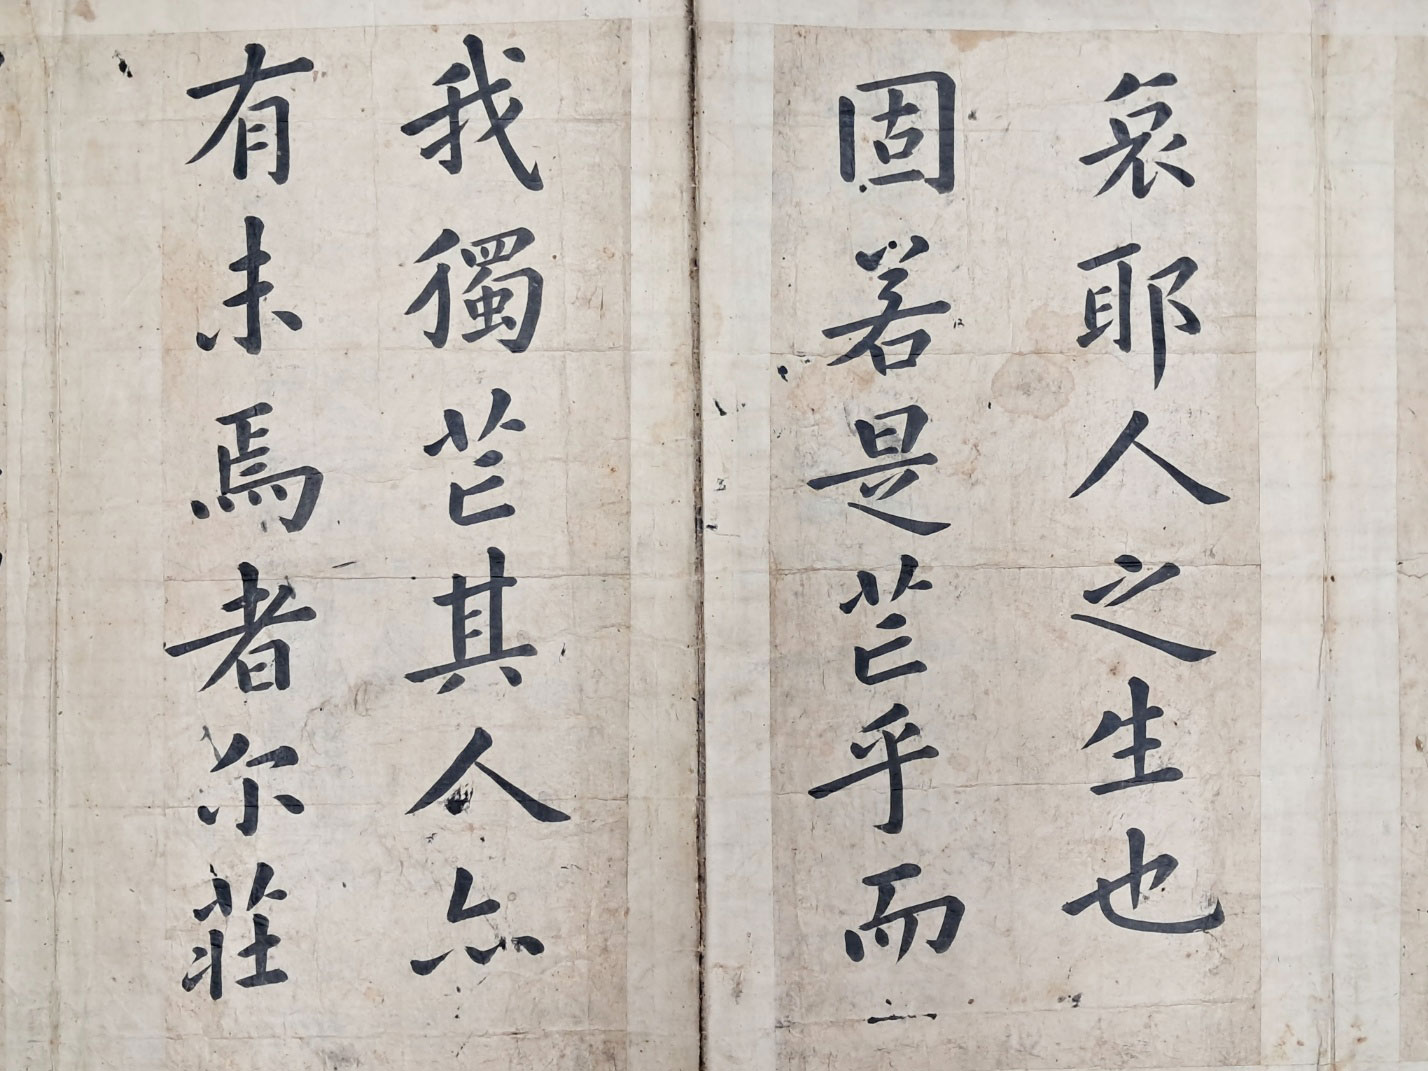 哀耶人之生也
固若是芒乎而
我獨芒其人亦
有未焉者尔莊